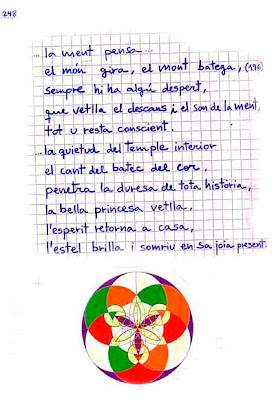 248
...la ment pensa...
el món gira, el mont batega, (196)
sempre hi ha algú despert,
que vetlla el descans i el son de la ment,
tot u resta conscient.
...la quietud del temple interior
el cant del batec del cor,
penetra la duresa de tota història,
la bella princesa vetlla,
l'esperit retorna a casa,
l'estel brilla i somriu en sa joia present.